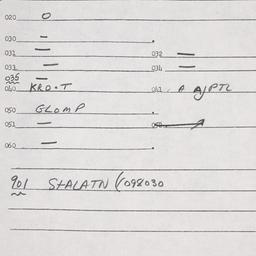 020 O
030 —
031 — 032 —
033 — 034 —
035 —
040 KROOT 041
050 GLOMP
051 —
060 —
901 StALATN (098030